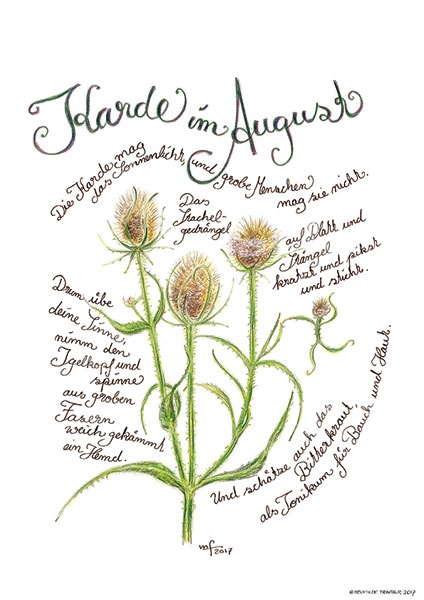 Karde im August
Die Karde mag
das Sonnenlicht, und grobe Menschen
mag sie nicht.
Das
Stachel-
gedrängel
auf Blatt und
Stängel
kratzt und pikst
und sticht.
Drum übe
deine Sinne,
nimm den
Igelkopf und
spinne
aus groben
Fasern
weich gekämmt
ein Hemd.
Und schätze auch das
Bitterkraut
als Tonikum für Bauch und Haut.
2017
2017